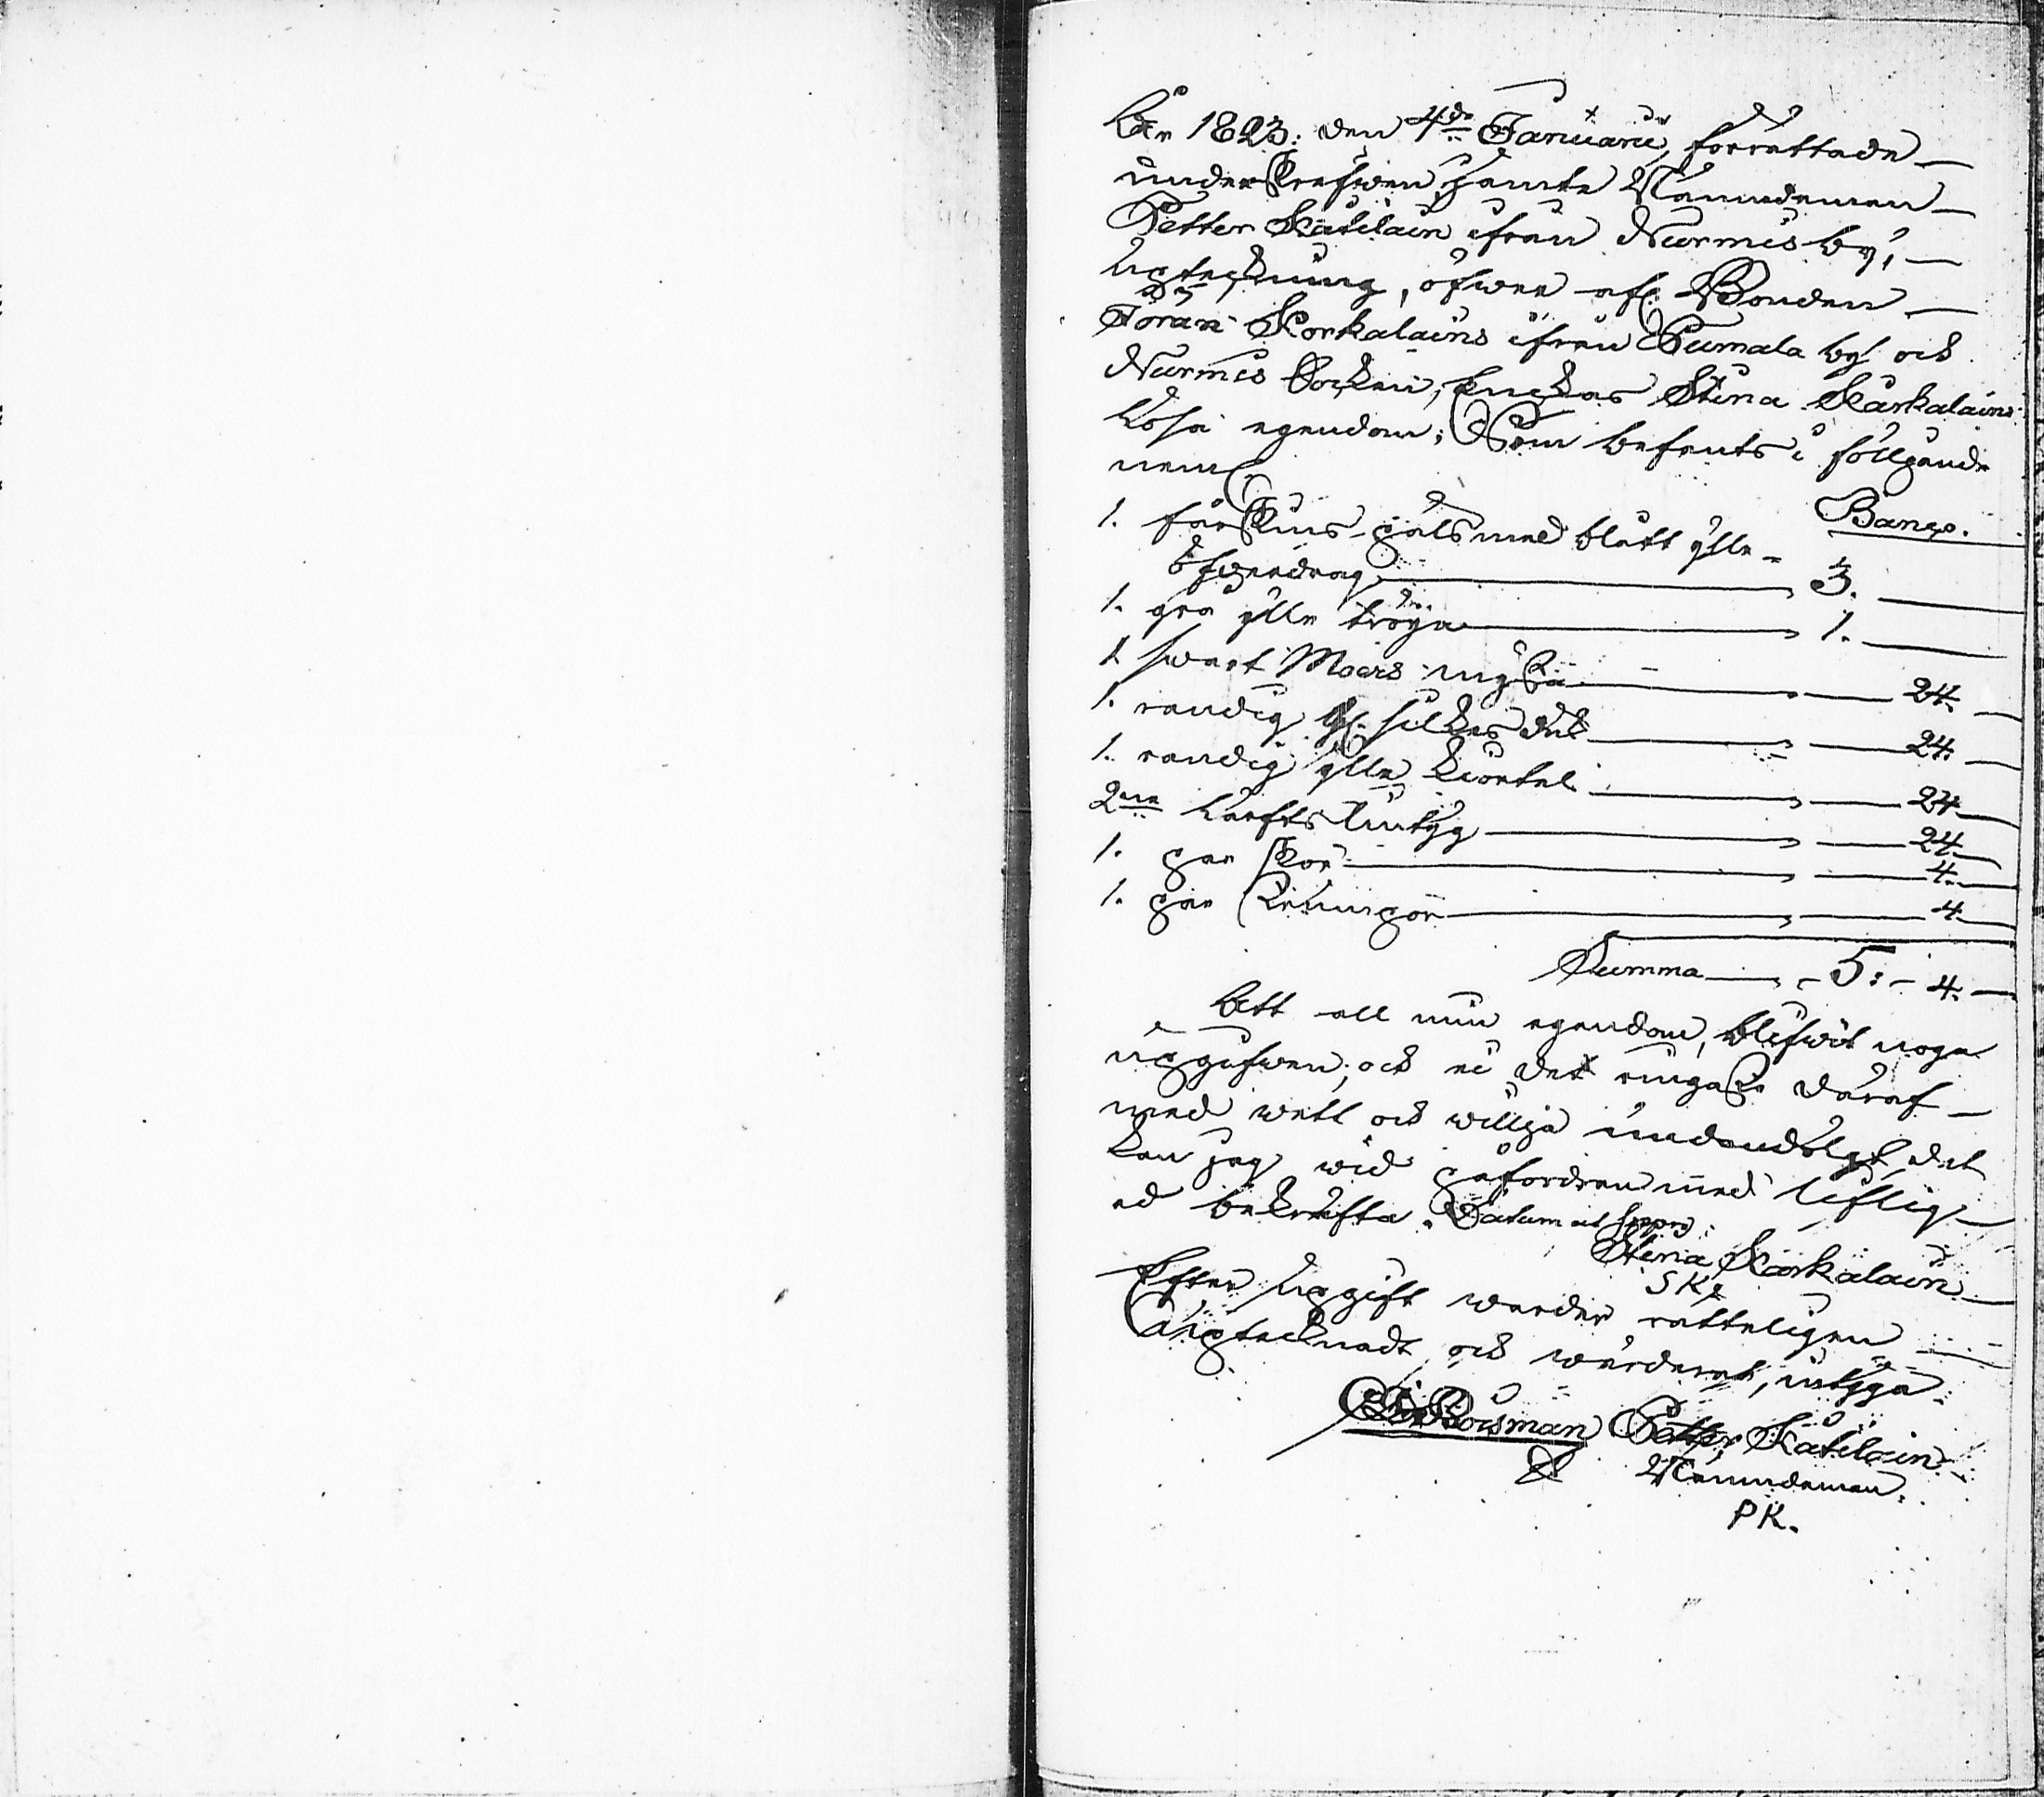 År 1823: den 4de Januarii, förrättade
underskrefwen jämte Nämndeman
Petter Kätiläin ifrån Nurmis by,
upteckning, öfwer afl. Bonden
Jöran Korkalains ifrån Pumala by och
Nurmis Socken, Enckas Stina Karkalains
lösa egendom; Som befants i föllgande
neml.
Banco.
1. fårskins päls med blått ylle
öfwerdrag 3.
1. grå ylle tröya 1.
1 swart Moers myssa 24.
1. randig hf. silkes duk 24.
1. randig ylle kiortel 24
2ne Lärfts lintyg 24
1. par skor 4.
1. par Strumpor 4
Summa 5: 4.
Att all min egendom, blifwit noga
uppgifwen, och ei det ringaste däraf
med wett och willja undandölgt, det
kan jag wid påfordran med liflig
ed bekräfta. Datum ut supra.
Stina Karkalain
SK
Efter uppgift warder rätteligen
upptecknadt och värderat, intyga
Roisman Petter Kätiläin
Nämndeman.
PK.